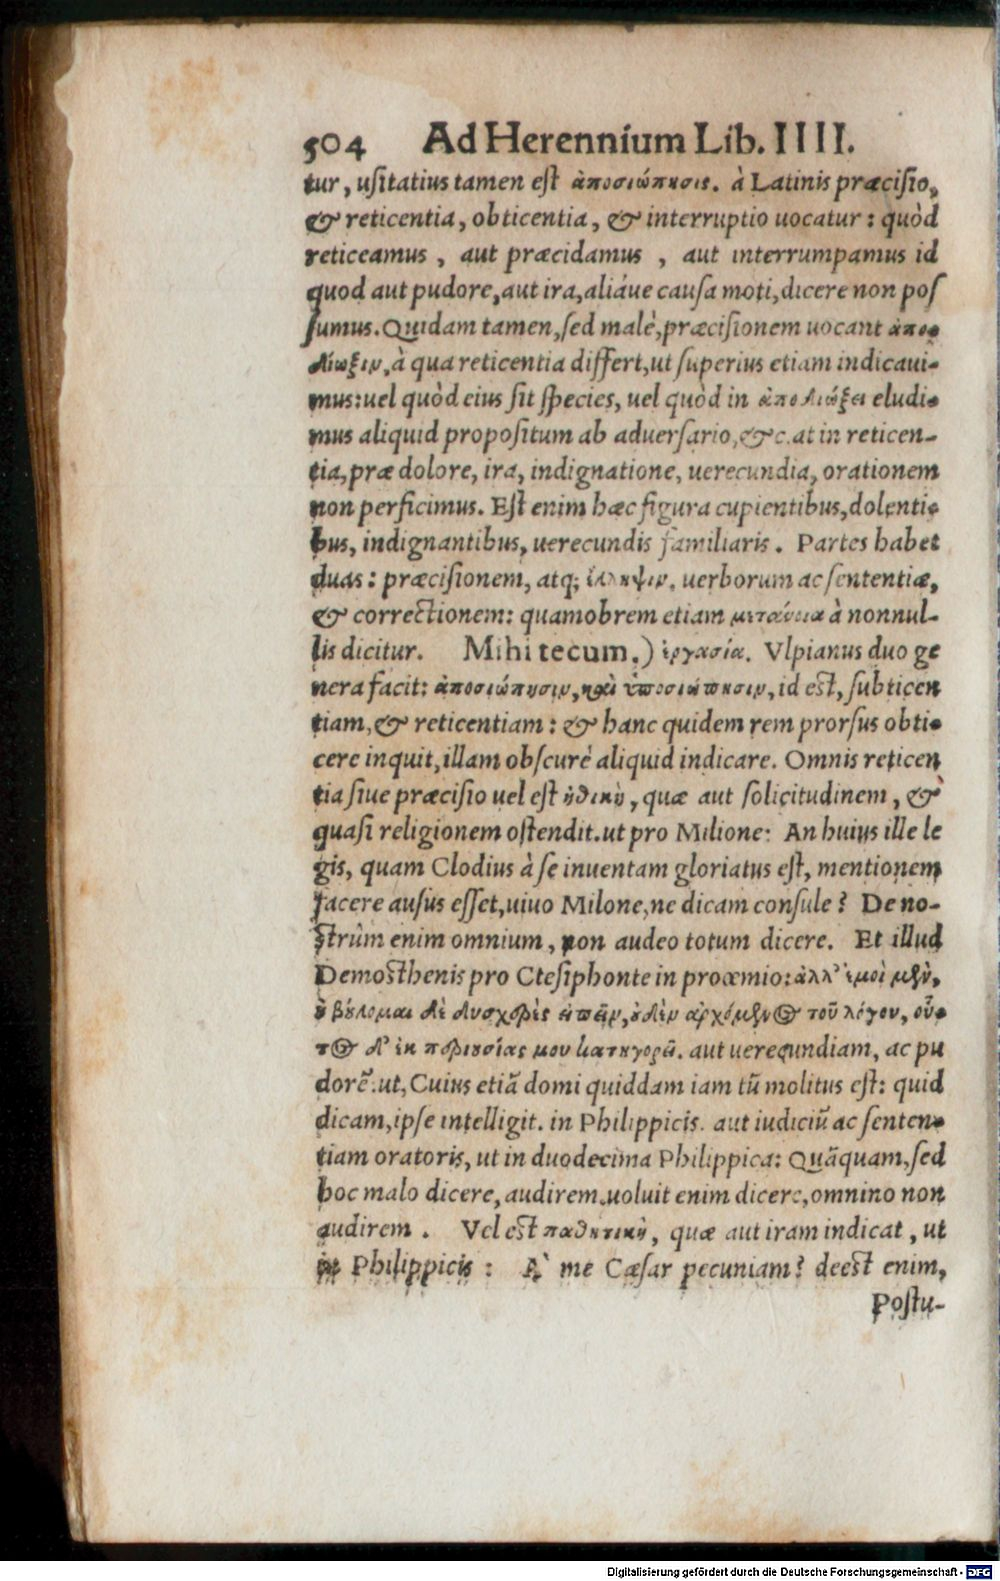 504 Ad Herennium Lib. IIII.
tur, uſitatius tamen eſt ἀποσιώπησις. à Latinis præciſio,
& reticentia, obticentia, & interruptio uocatur: quòd
reticeamus, aut præcidamus, aut interrumpamus id
quod aut pudore, aut ira, aliáue cauſa moti, dicere non poſ
ſumus. Quidam tamen, ſed malè, præciſionem uocant ἀπο-
δίωξιν, à qua reticentia differt, ut ſuperius etiam indicaui-
mus: uel quòd eius ſit ſpecies, uel quòd in ἀποδιώξει eludi-
mus aliquid propoſitum ab aduerſario, &c. at in reticen-
tia, præ dolore, ira, indignatione, uerecundia, orationem
non perficimus. Eſt enim hæc figura cupientibus, dolenti-
bus, indignantibus, uerecundis familiaris. Partes habet
duas: præciſionem, atq; ἔλλειψιν, uerborum ac ſententiæ,
& correctionem: quamobrem etiam μετάνοια à nonnul-
lis dicitur. Mihi tecum.) ἐργασία. Vlpianus duo ge
nera facit: ἀποσιώπησιν, καὶ ὑποσιώπησιν, id eſt, ſubticen
tiam, & reticentiam: & hanc quidem rem prorſus obti-
cere inquit, illam obſcurè aliquid indicare. Omnis reticen
tia ſiue præciſio uel eſt ἠθικὴ, quæ aut ſolicitudinem, &
quaſi religionem oſtendit. ut pro Milione: An huius ille le
gis, quam Clodius à ſe inuentam gloriatus eſt, mentionem
facere auſus eſſet, uiuo Milone, ne dicam conſule? De no-
ſtrûm enim omnium, non audeo totum dicere. Et illud
Demoſthenis pro Cteſiphonte in proœmio: ἀλλ' ἐμοὶ μὲν,
οὐ βούλομαι δὲ δυσχερὲς εἰπεῖν, οὐδὲν ἀρχόμενος τοῦ λόγου, οὗ-
τος δ' ἐκ περιουσίας μου κατηγορεῖ. aut uerecundiam, ac pu
dorē. ut, Cuius etiā domi quiddam iam tū molitus eſt: quid
dicam, ipſe intelligit. in Philippicis. aut iudiciū ac ſenten-
tiam oratoris, ut in duodecima Philippica: Quāquam, ſed
hoc malo dicere, audirem. uoluit enim dicere, omnino non
audirem. Vel eſt παθητικὴ, quæ aut iram indicat, ut
in Philippicis: A` me Cæſar pecuniam? deeſt enim,
Poſtu-
Digitalisierung gefördert durch die Deutsche Forschungsgemeinschaft - DFG